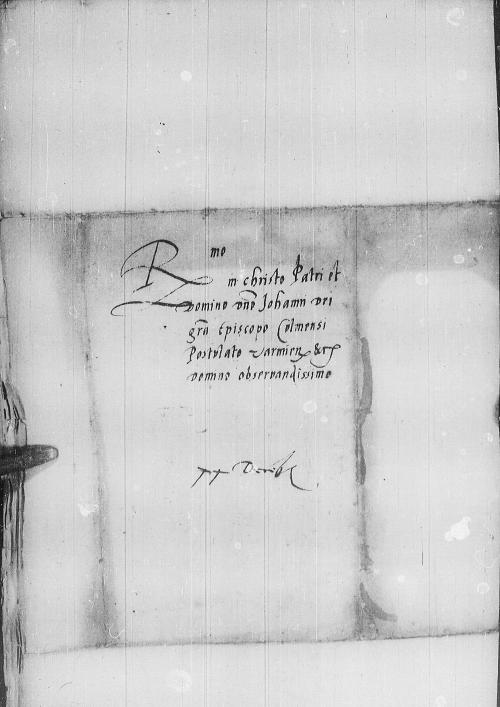 Rmo
in christo Patri et
Domino Dno Johanni Dei
gra Episcopo Colmensi
Postulato Varmien &c
Domno observandissimo